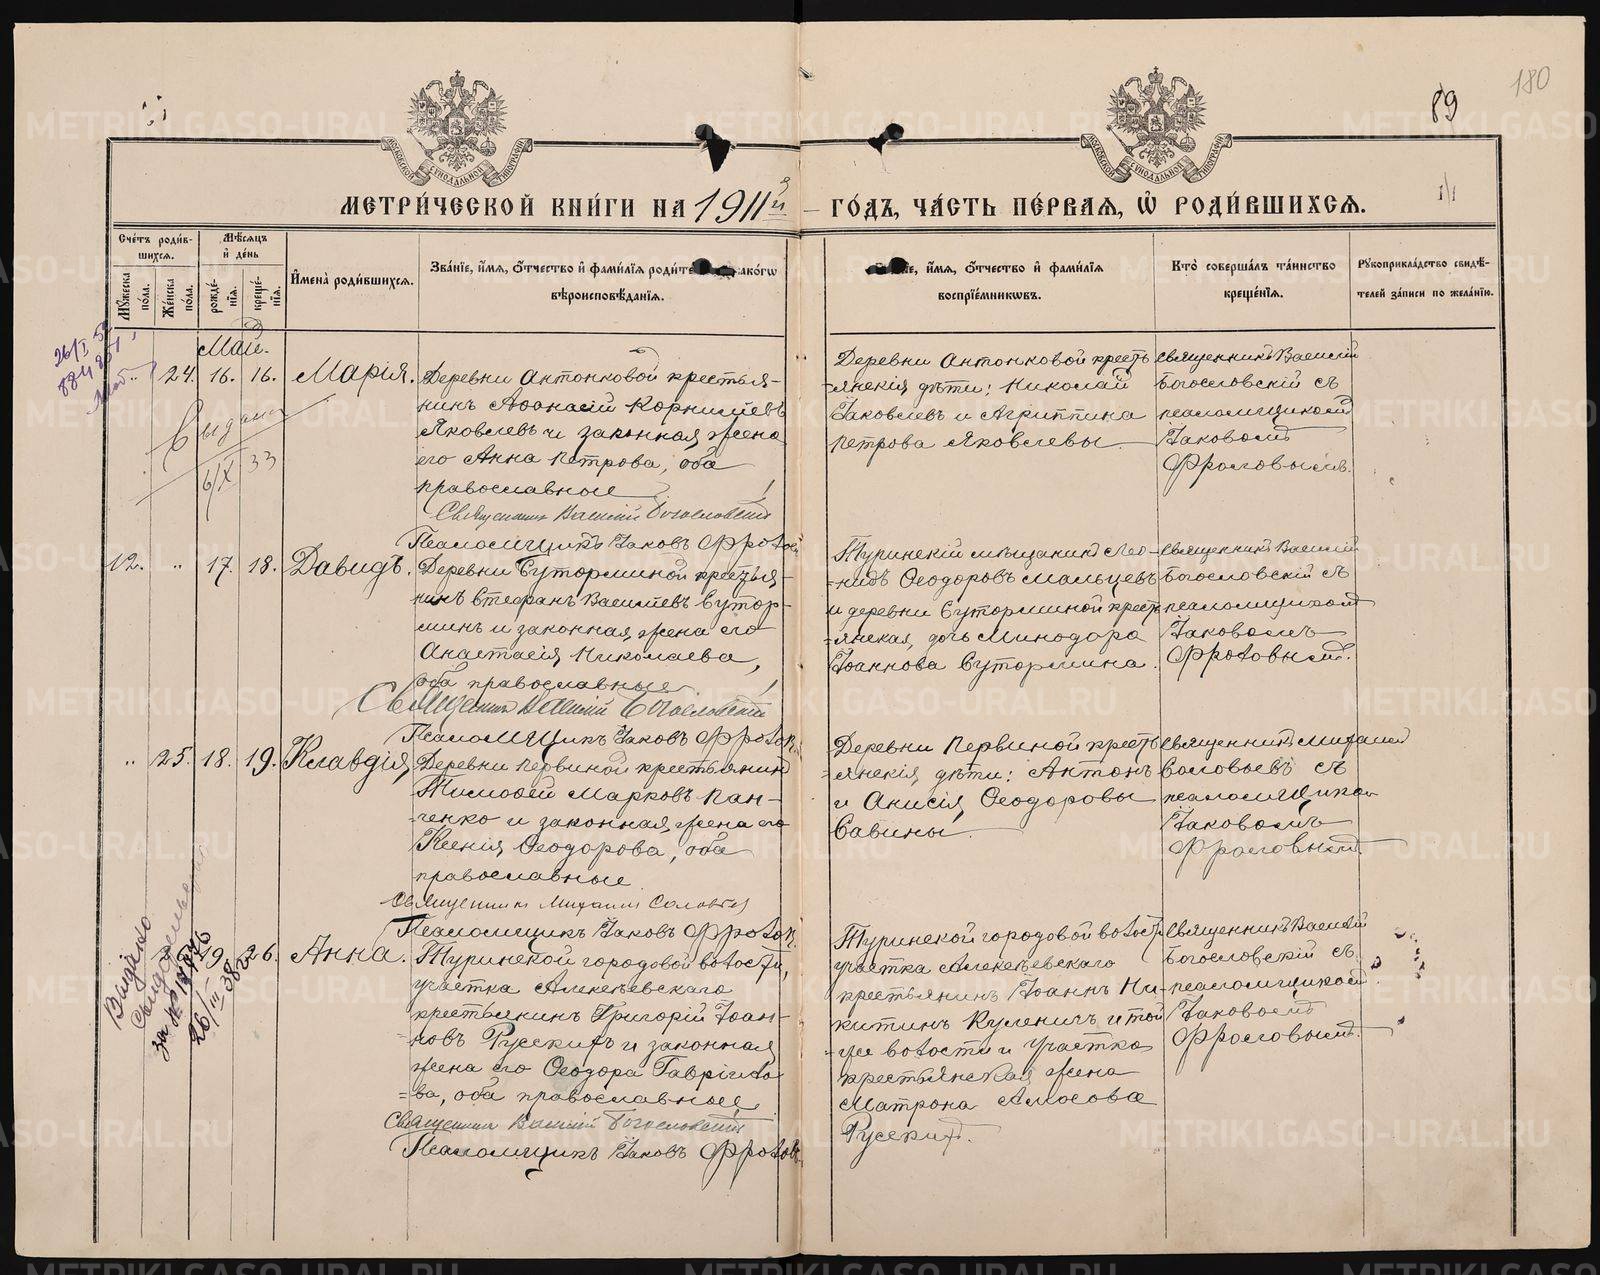 180
89
МЕТРИ́ЧЕСКОЙ КНИ́ГИ НА 1911й ГО́ДЪ, ЧА́СТЬ ПЕ́РВАѦ, Ѡ РОДИ́ВШИХСѦ.
Сче́тъ роди́в-
шихсѧ.
Мꙋ́жеска по́ла.
Же́нска по́ла.
Мѣ́сѧцъ
и҆ де́нь
рожде́-
нїѧ.
креще́-
нїѧ.
И҆мена̀ роди́вшихсѧ.
Зва́нїе, и҆́мѧ, ѻ҆́тчество и҆ фами́лїѧ роди́те ако́гѡ
вѣроисповѣ́данїѧ.
и҆́мѧ, ѻ҆́тчество и҆ фами́лїѧ
воспрїе́мникѡвъ.
Кто̀ соверша́лъ та́инство
креще́нїѧ.
Рꙋкоприкла́дство свидѣ́-
телей за́писи по жела́нїю.
Май.
24. 16. 16. Марія.
Деревни Антонковой крестья-
нинъ Аѳонасій Корнилiевъ
Яковлевъ и законная жена
его Анна Петрова, оба
православные
Священникъ Василій Богословскій
Псаломщикъ Іаковъ Фролов
Деревни Антонковой кресть
-янскія дѣти: Николай
Іаковлевъ и Агриппина
Петрова Яковлевы
Священникъ Василій
Богословскій съ
псаломщикомъ
Іаковомъ
Фроловымъ.
Выдана
6/X 33
12. " 17. 18. Давидъ.
Деревни Суторминой крестья-
нинъ Стефанъ Васильевъ Сутор-
минъ и законная жена его
Анастасія Николаева,
оба православные
Священникъ Василій Богословскій
Псаломщикъ Іаковъ Фролов
Туринскій мѣщанинъ Лео-
=нидъ Ѳеодоровъ Мальцевъ
и деревни Суторминой крест
=янская дочь Минодора
Іоаннова Сутормина.
Священникъ Василій
Богословскій съ
псаломщикомъ
Іаковомъ
Фроловымъ.
" 25. 18. 19. Клавдія
Деревни Первиной крестьянинъ
Тимоѳей Марковъ Пан-
-ченко и законная жена его
Ксенія Ѳеодорова, оба
православные
Священникъ Михаилъ Соловьев
Псаломщикъ Іаковъ Фролов
Деревни Первиной кресть
=янскія дѣти: Антонъ
и Анисія Ѳеодоровы
Савины.
Священникъ Михаилъ
Соловьевъ съ
псаломщиком
Іаковомъ
Фроловымъ.
26. 19. 26. Анна.
Туринской городовой волости,
участка Алексѣевскаго
крестьянинъ Григорій Іоан-
-новъ Русскихъ и законная
жена его Ѳеодора Гаврiило
=ва, оба православные
Священникъ Василій Богословскій
Псаломщикъ Іаковъ Фролов
Туринской городовой волост
участка Алексѣевскаго
крестьянинъ Іоаннъ Ни-
китинъ и той
-же волости и участка
крестьянская жена
Матрона Амосова
Русскихъ.
Священникъ Василій
Богословскій съ
псаломщикомъ
Іаковомъ
Фроловымъ.
Выдано
26/III 38
METRIKI.GASO-URAL.RU